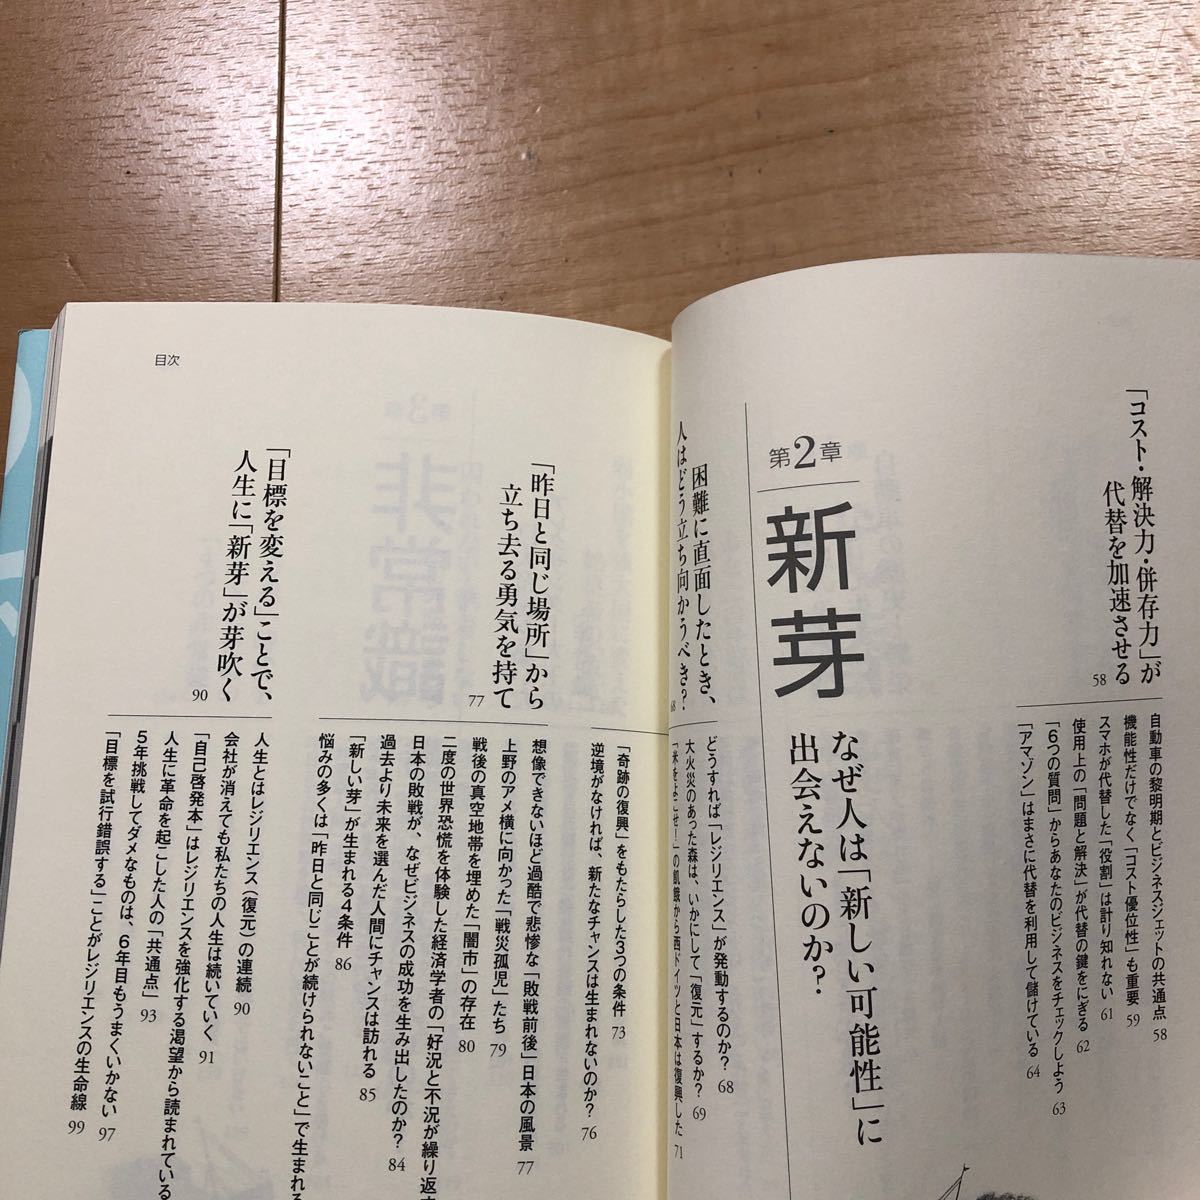 「コスト・解決力・併存力」が
代替を加速させる 58
自動車の黎明期とビジネスジェットの共通点 58
機能性だけでなく「コスト優位性」も重要 59
スマホが代替した「役割」は計り知れない 61
使用上の「問題と解決」が代替の鍵をにぎる 62
「6つの質問」からあなたのビジネスをチェックしよう 63
「アマゾン」はまさに代替を利用して儲けている 64
第2章
新芽
なぜ人は「新しい可能性」に
出会えないのか?
困難に直面したとき、
人はどう立ち向かうべき? 68
どうすれば「レジリエンス」が発動するのか? 68
大火災のあった森は、いかにして「復元」するか? 69
「米をよこせ!」の飢餓から西ドイツと日本は復興した 71
目次
「奇跡の復興」をもたらした3つの条件 73
逆境がなければ、新たなチャンスは生まれないのか? 76
「昨日と同じ場所」から
立ち去る勇気を持て 77
想像できないほど過酷で悲惨な「敗戦前後」日本の風景 77
上野のアメ横に向かった「戦災孤児」たち 79
戦後の真空地帯を埋めた「闇市」の存在 80
二度の世界恐慌を体験した経済学者の「好況と不況が繰り返す
日本の敗戦が、なぜビジネスの成功を生み出したのか? 84
過去より未来を選んだ人間にチャンスは訪れる 85
「新しい芽」が生まれる4条件 86
悩みの多くは「昨日と同じことが続けられないこと」で生まれる
「目標を変える」ことで、
人生に「新芽」が芽吹く 90
人生とはレジリエンス(復元)の連続 90
会社が消えても私たちの人生は続いていく 91
「自己啓発本」はレジリエンスを強化する渇望から読まれている
人生に革命を起こした人の「共通点」 93
5年挑戦してダメなものは、6年目もうまくいかない 97
「目標を試行錯誤する」ことがレジリエンスの生命線 99